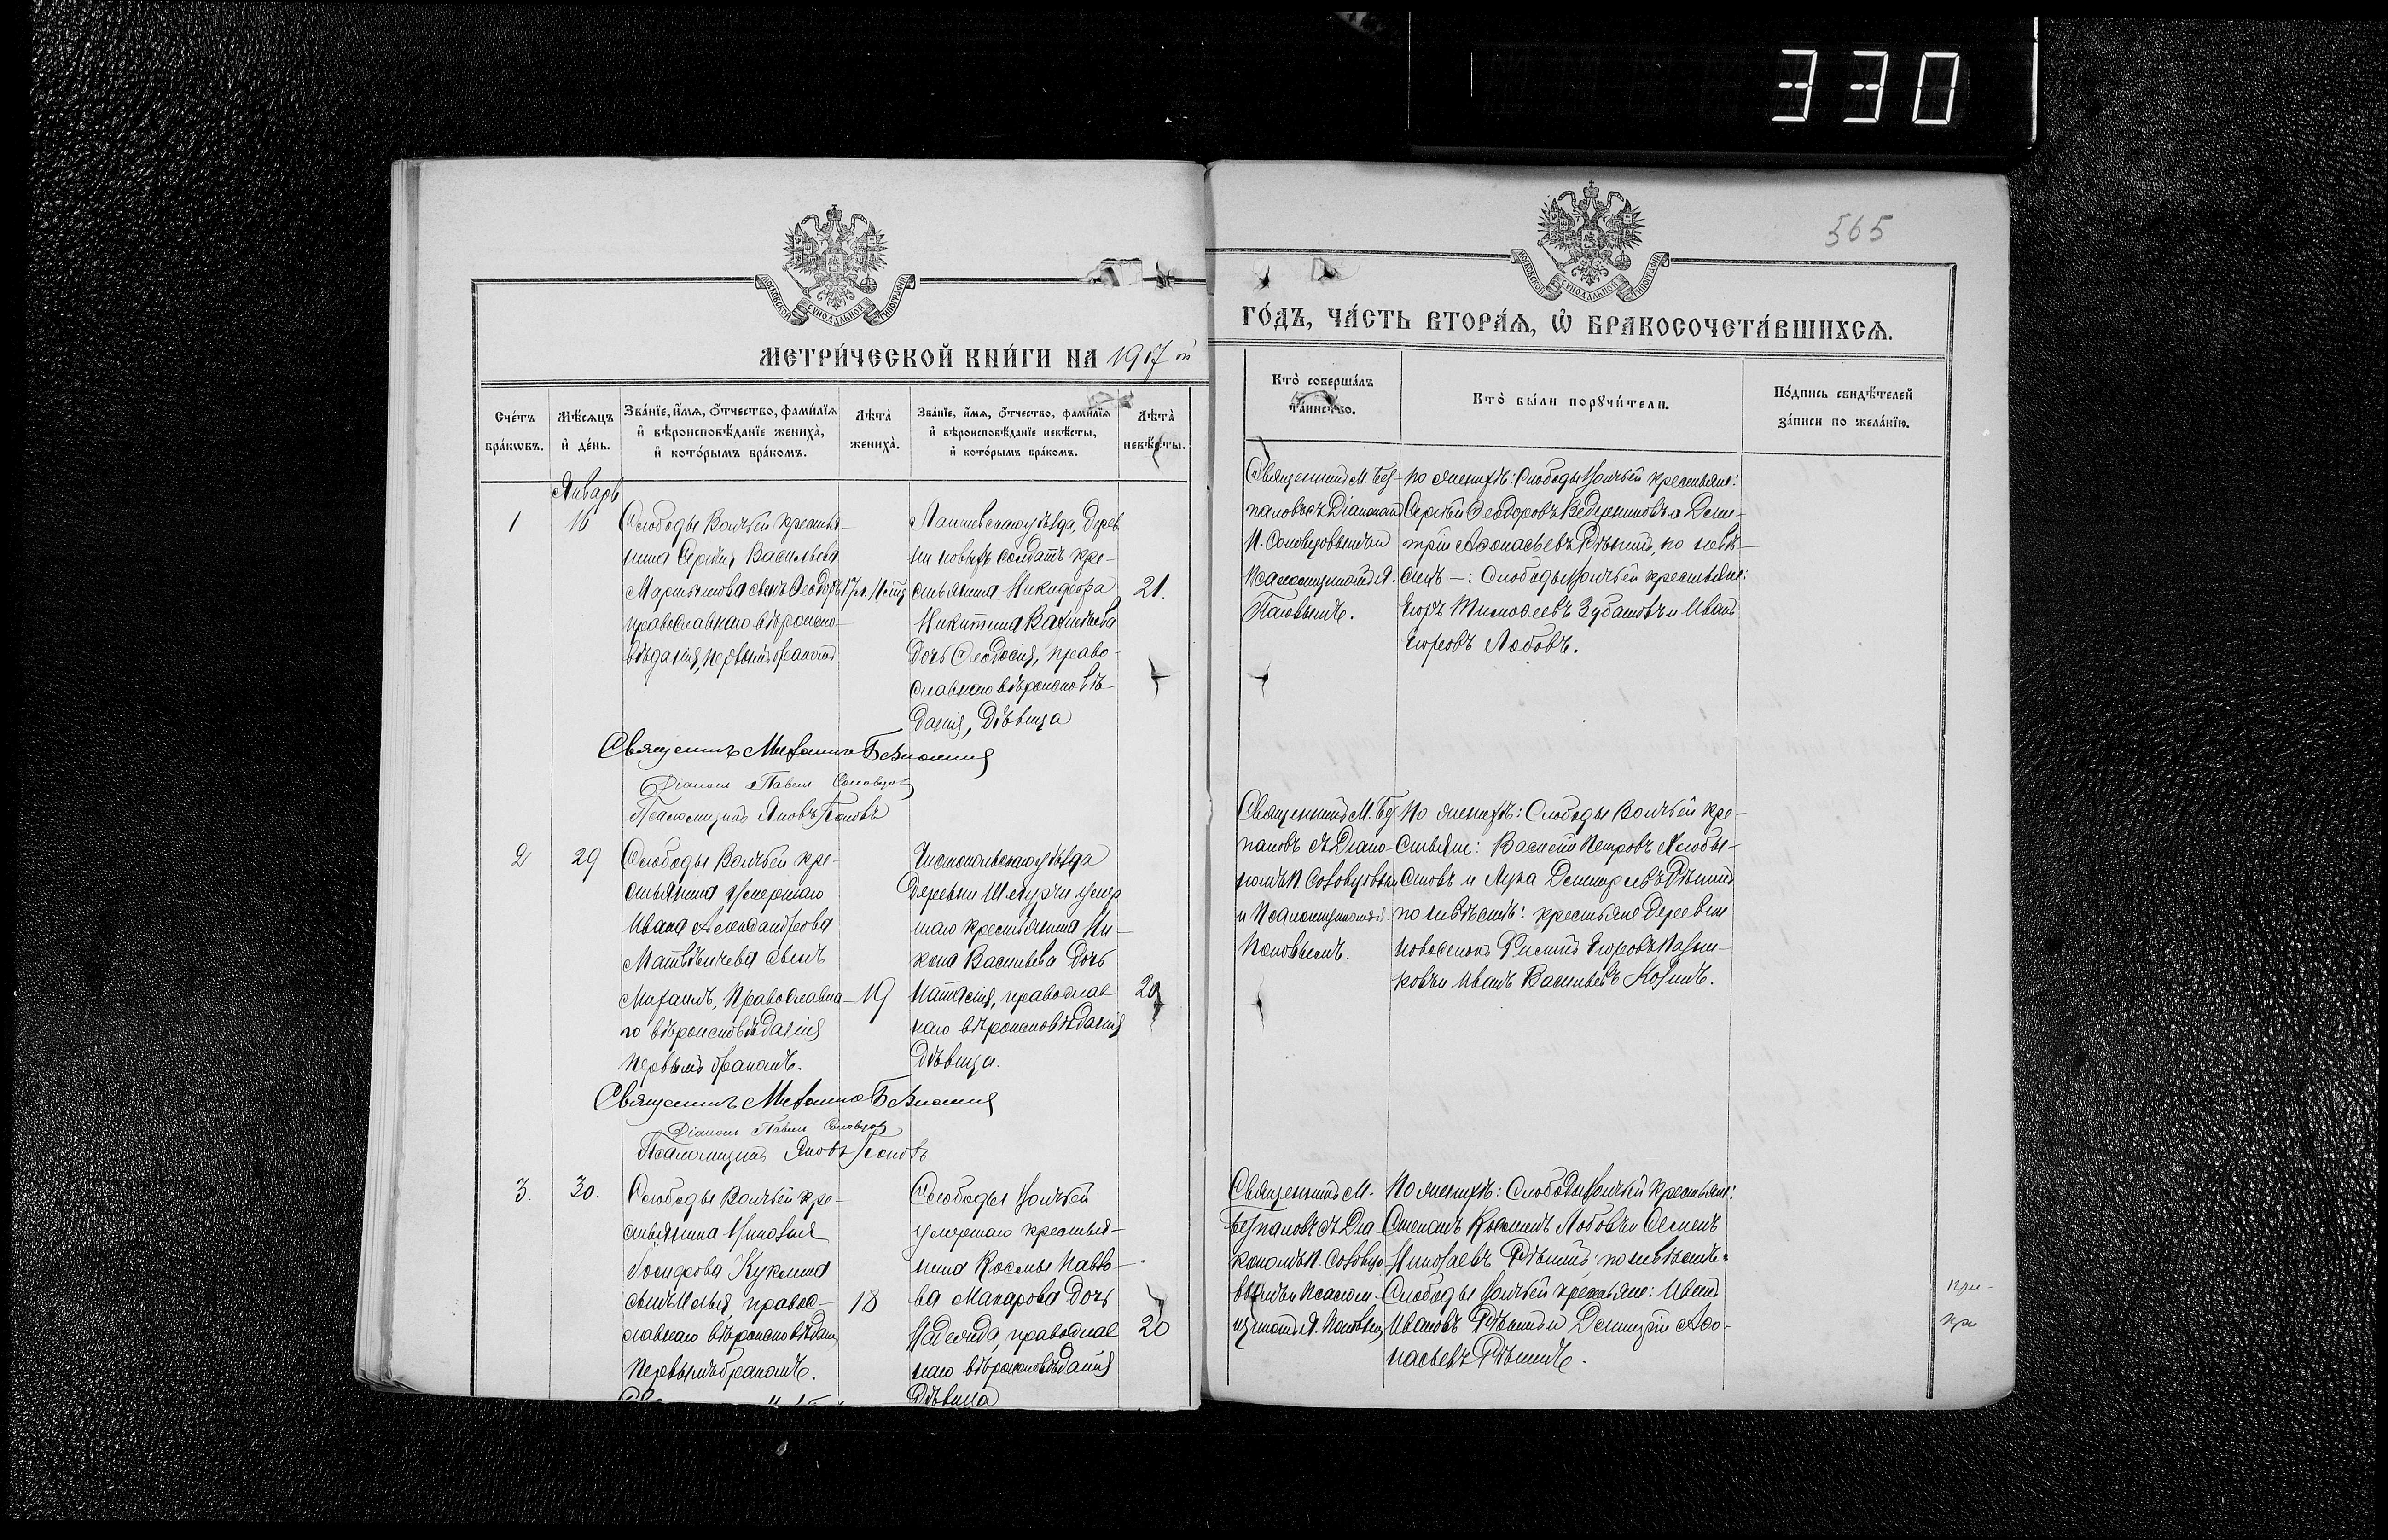 330
565
МОСКОВСКОЙ СУНОДАЛЬНОЙ ТИПОГРАФІИ
МЕТРИ́ЧЕСКОЙ КНИ́ГИ НА 1917 й
Сче́тъ бра́кωвъ.
Мѣ́сѧцъ и҆ де́нь.
Зва́нїе, и҆́мѧ, ѻ҆́тчество, фами́лїѧ
и҆ вѣроисповѣ́данїе жениха̀,
и҆ кото́рымъ бра́комъ.
Лѣта̀ жениха̀.
Зва́нїе, и҆́мѧ, ѻ҆́тчество, фами́лїѧ
и҆ вѣроисповѣ́данїе невѣ́сты,
и҆ кото́рымъ бра́комъ.
Лѣта̀ невѣ́сты.
Январь
1
16
Слободы Волчьей крестья-
нина Сергѣя Васильева
сынъ Ѳеодоръ 17 л.
православнаго вѣроиспо-
вѣданія, первымъ бракомъ
Лаишевскаго уѣзда, дерев
ни новыхъ солдатъ кре-
стьянина Никифора
Никитина
дочь Ѳеодосія, право-
славнаго вѣроисповѣ-
данія, дѣвица
21.
Священникъ Михаилъ
Діаконъ Павелъ Соловцов
Псаломщикъ Яковъ Поповъ
2
29
Слободы Волчьей кре-
стьянина умершаго
Ивана Александрова
Матвѣичева сынъ
Михаилъ, Православна-
го вѣроисповѣданія
первымъ бракомъ.
19
Чистопольскаго уѣзда
деревни умер
шаго крестьянина Ни-
кона Васильева дочь
православ
наго вѣроисповѣданія
дѣвица.
20
Священникъ Михаилъ
Діаконъ Павелъ Соловцов
Псаломщикъ Яковъ Поповъ
3.
30.
Слободы Волчьей кре-
стьянина
Іосифова Куклина
сынъ Илья, правос-
лавнаго вѣроисповѣдан
первымъ бракомъ.
18
Слободы Волчьей
умершаго крестья-
нина Космы Павло-
ва Макарова дочь
Надежда, православ
наго вѣроисповѣданія
дѣвица
20
ГО́ДЪ, ЧА́СТЬ ВТОРА́Ѧ, Ѽ БРАКОСОЧЕТА́ВШИХСѦ.
Кто̀ соверша́лъ та́инство.
Кто̀ бы́ли порꙋчи́тели.
По́дпись свидѣ́телей
за́писи по жела́нїю.
Священникъ М. Без-
паловъ съ Діакономъ
П. Соловцовымъ и
Псаломщикомъ Я.
Поповымъ.
по женихѣ: Слободы Волчьей крестьяне:
Сергѣй Ѳеодоровъ Ведерниковъ и Дими-
трій Аѳонасьевъ Рѣпинъ, по невѣ-
стѣ —: Слободы Волчьей крестьяне:
Егоръ Тимоѳеевъ Зубановъ и Иванъ
Егоровъ Лобовъ.
Священникъ М. Без
паловъ съ Діако-
номъ П. Соловцовым
и Псаломщикомъ Я
Поповымъ.
по женихѣ: Слободы Волчьей кре-
стьяне: Василій Петровъ
и Лука Димитріевъ Рѣпинъ
по невѣстѣ: крестьяне деревни
Егоровъ
ковъ и Иванъ Васильевъ Козинъ.
Священникъ М.
Безпаловъ съ Діа
кономъ П. Соловцо
вымъ и Псалом-
щикомъ Я. Поповым
По женихѣ: Слободы Волчьей крестьяне:
Степанъ Космичъ Лобовъ и Семенъ
Рѣпинъ: по невѣстѣ:
Слободы Волчьей крестьяне: Иванъ
Ивановъ Рѣпинъ и Димитрій Аѳо-
насьевъ Рѣпинъ.
при